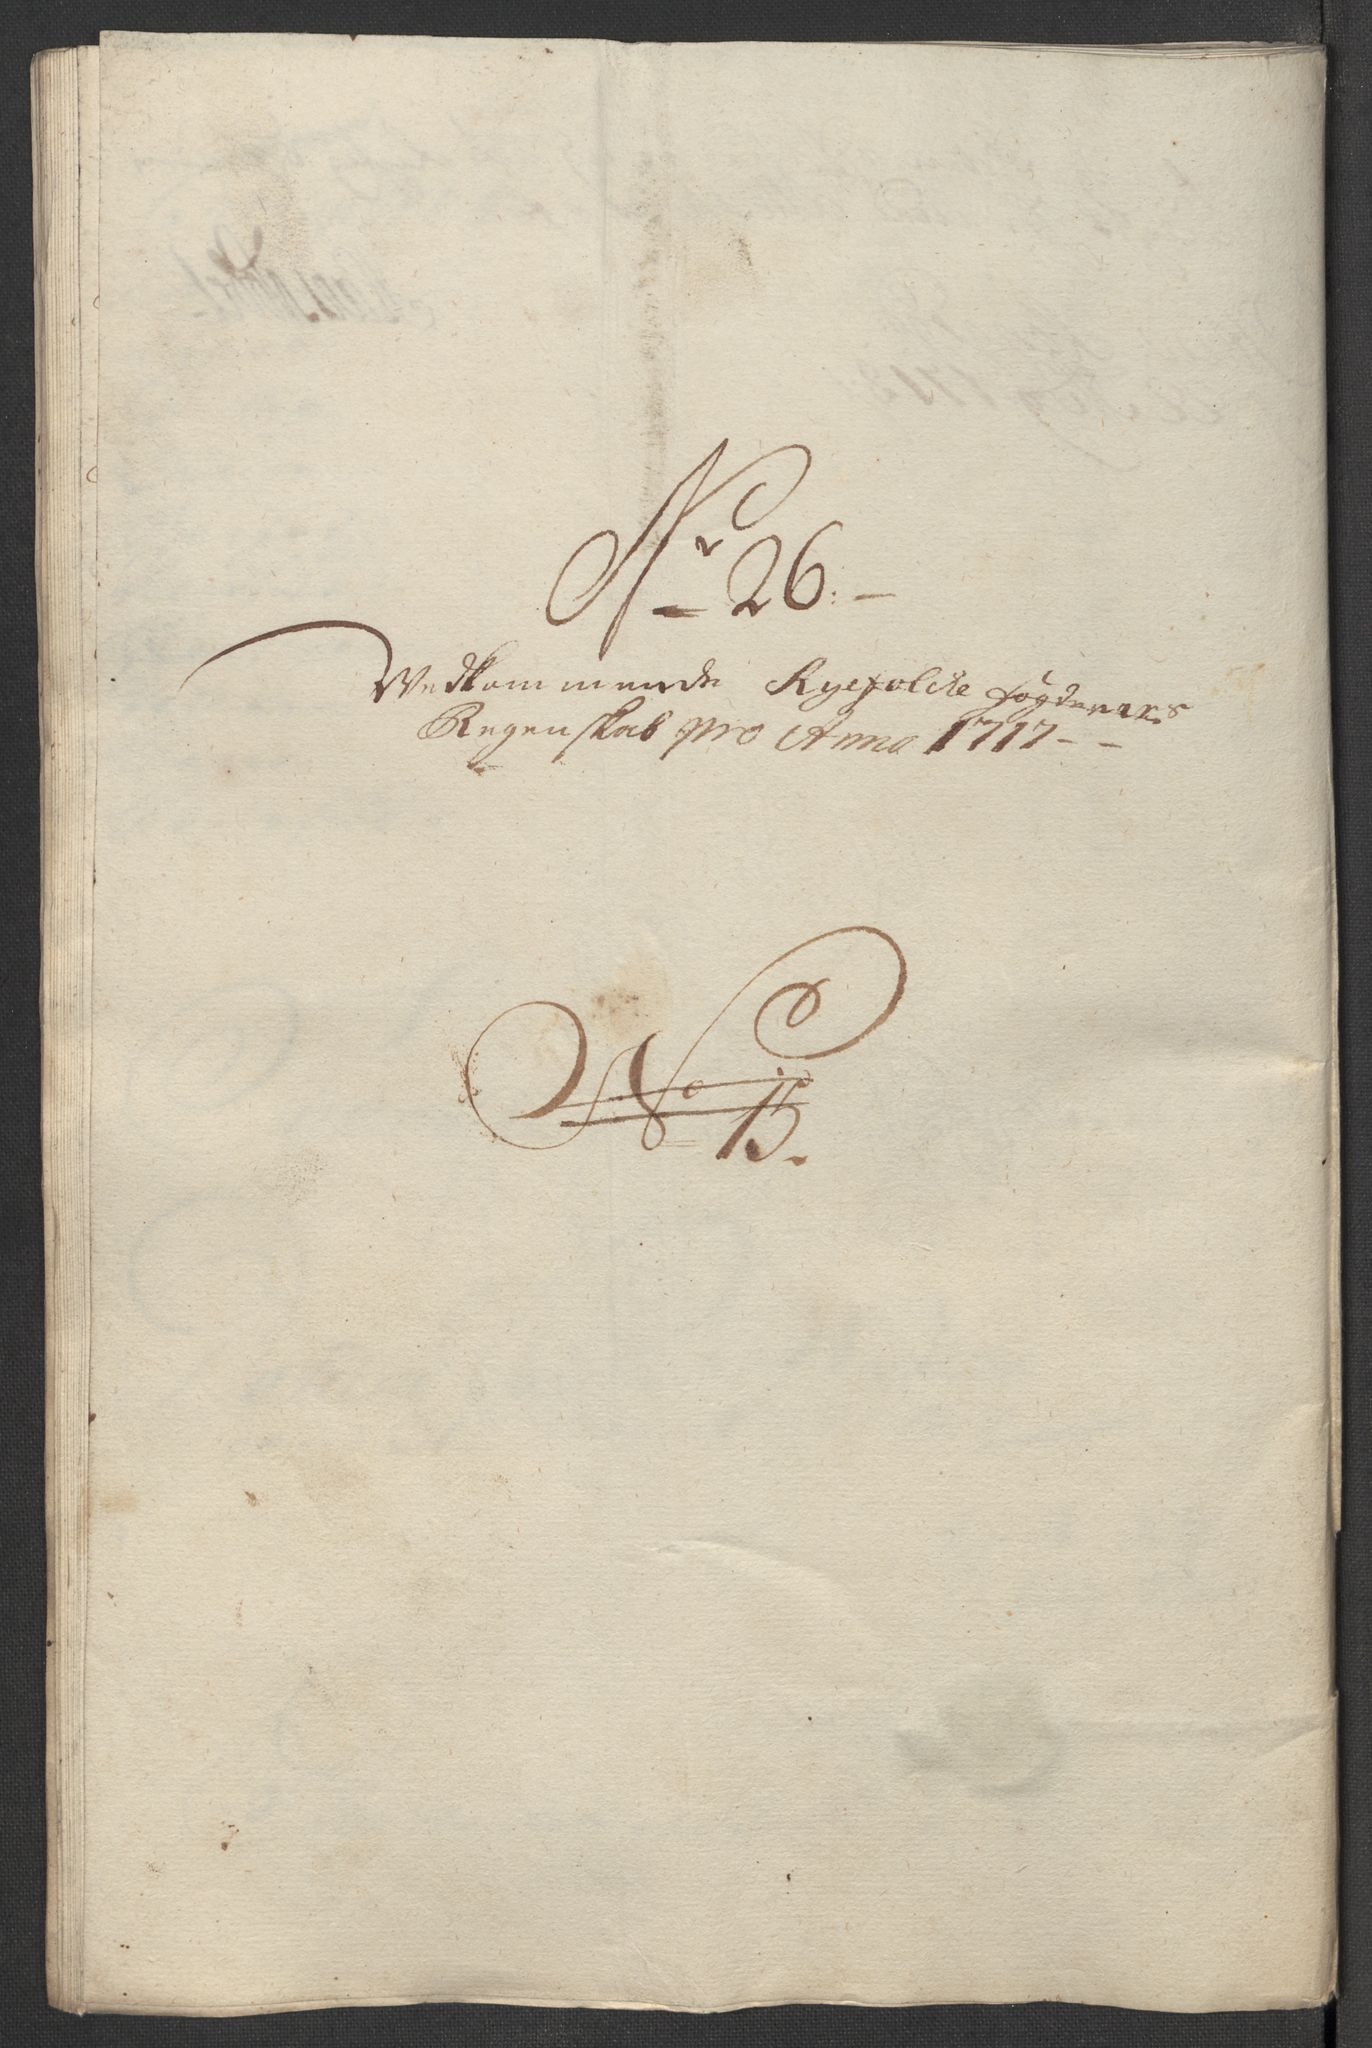 Nr 26:-
Vedkommende Ryefolche fogderiers
Regenskab pro Anno 1717--
No 15.